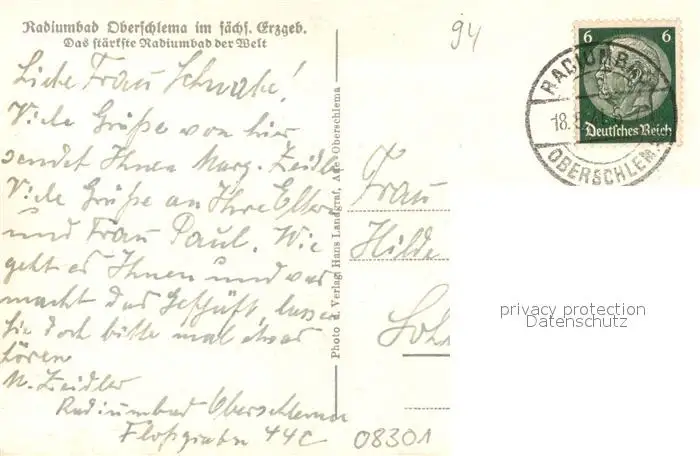 Radiumbad Oberschlema im sächs. Erzgeb.
Das stärkste Radiumbad der Welt
94
Liebe Frau Schwabe!
Viele Grüße von hier
sendet Ihnen Marg. Zeidler
Viele Grüße an Ihre Eltern
und Frau Paul. Wie
geht es Ihnen und was
macht das Geschäft, lassen
Sie doch bitte mal etwas
hören
M. Zeidler
Radiumbad Oberschlema
Floßgraben 44C
Photo u. Verlag Hans Landgraf, Aue-Oberschlema
6 6
Deutsches Reich
RADIUMBAD
18.8.
OBERSCHLEMA
Frau
Hilde
privacy protection
Datenschutz
08301